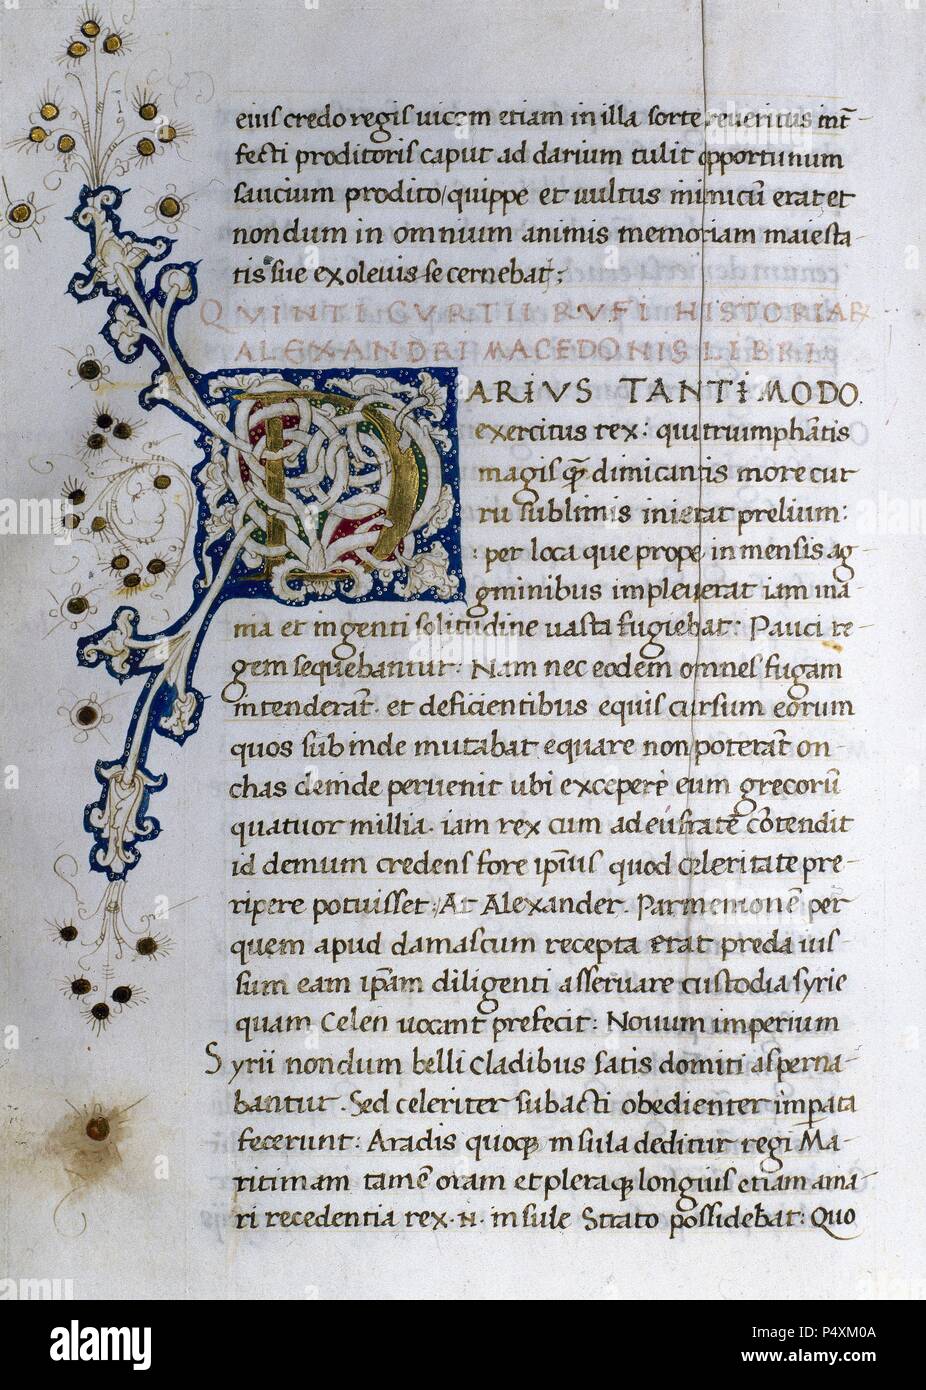 eius credo regis uicem etiam in illa sorte reueritus int̄
fecti proditoris caput ad darium tulit opportunum
saucium prodito/quippe et uultus inimicū erat et
nondum in omnium animis memoriam maiesta-
tis sue exoleuisse cernebat;
QVINTI CVRTII RVFI HISTORIAR
ALEXANDRI MACEDONIS LIBRI
DARIVS TANTI MODO.
exercitus rex: qui triumphātis
magis q̄ dimicantis more cur
ru sublimis inietat prelium:
: per loca que prope inmensis ag-
gminibus impleuerat iam ina-
nia et ingenti solitudine uasta fugiebat: Pauci re-
gem sequebantur: Nam nec eodem omnes fugam
intenderāt. et deficientibus equis cursum eorum
quos subinde mutabat equare non poterāt on-
chas deinde peruenit ubi excepere eum grecorū
quatuor millia. iam rex cum ad eufratē cōtendit
id demum credens fore ip̄ius quod celeritate pre-
ripere potuisset: At Alexander. Parmenionē per
quem apud damascum recepta erat preda ius-
sum eam ip̄am diligenti asseruare custodia syrie
quam Celen uocant prefecit: Nouum imperium
Syrii nondum belli cladibus satis domiti asperna-
bantur. Sed celeriter subacti obedienter imp̄ata
fecerunt: Aradis quoq insula deditur regi Ma-
ritimam tamē oram et pleraq longius etiam a ma-
ri recedentia rex. N. insule Strato possidebat: Quo
alamy
alamy stock photo
P4XM0A
www.alamy.com